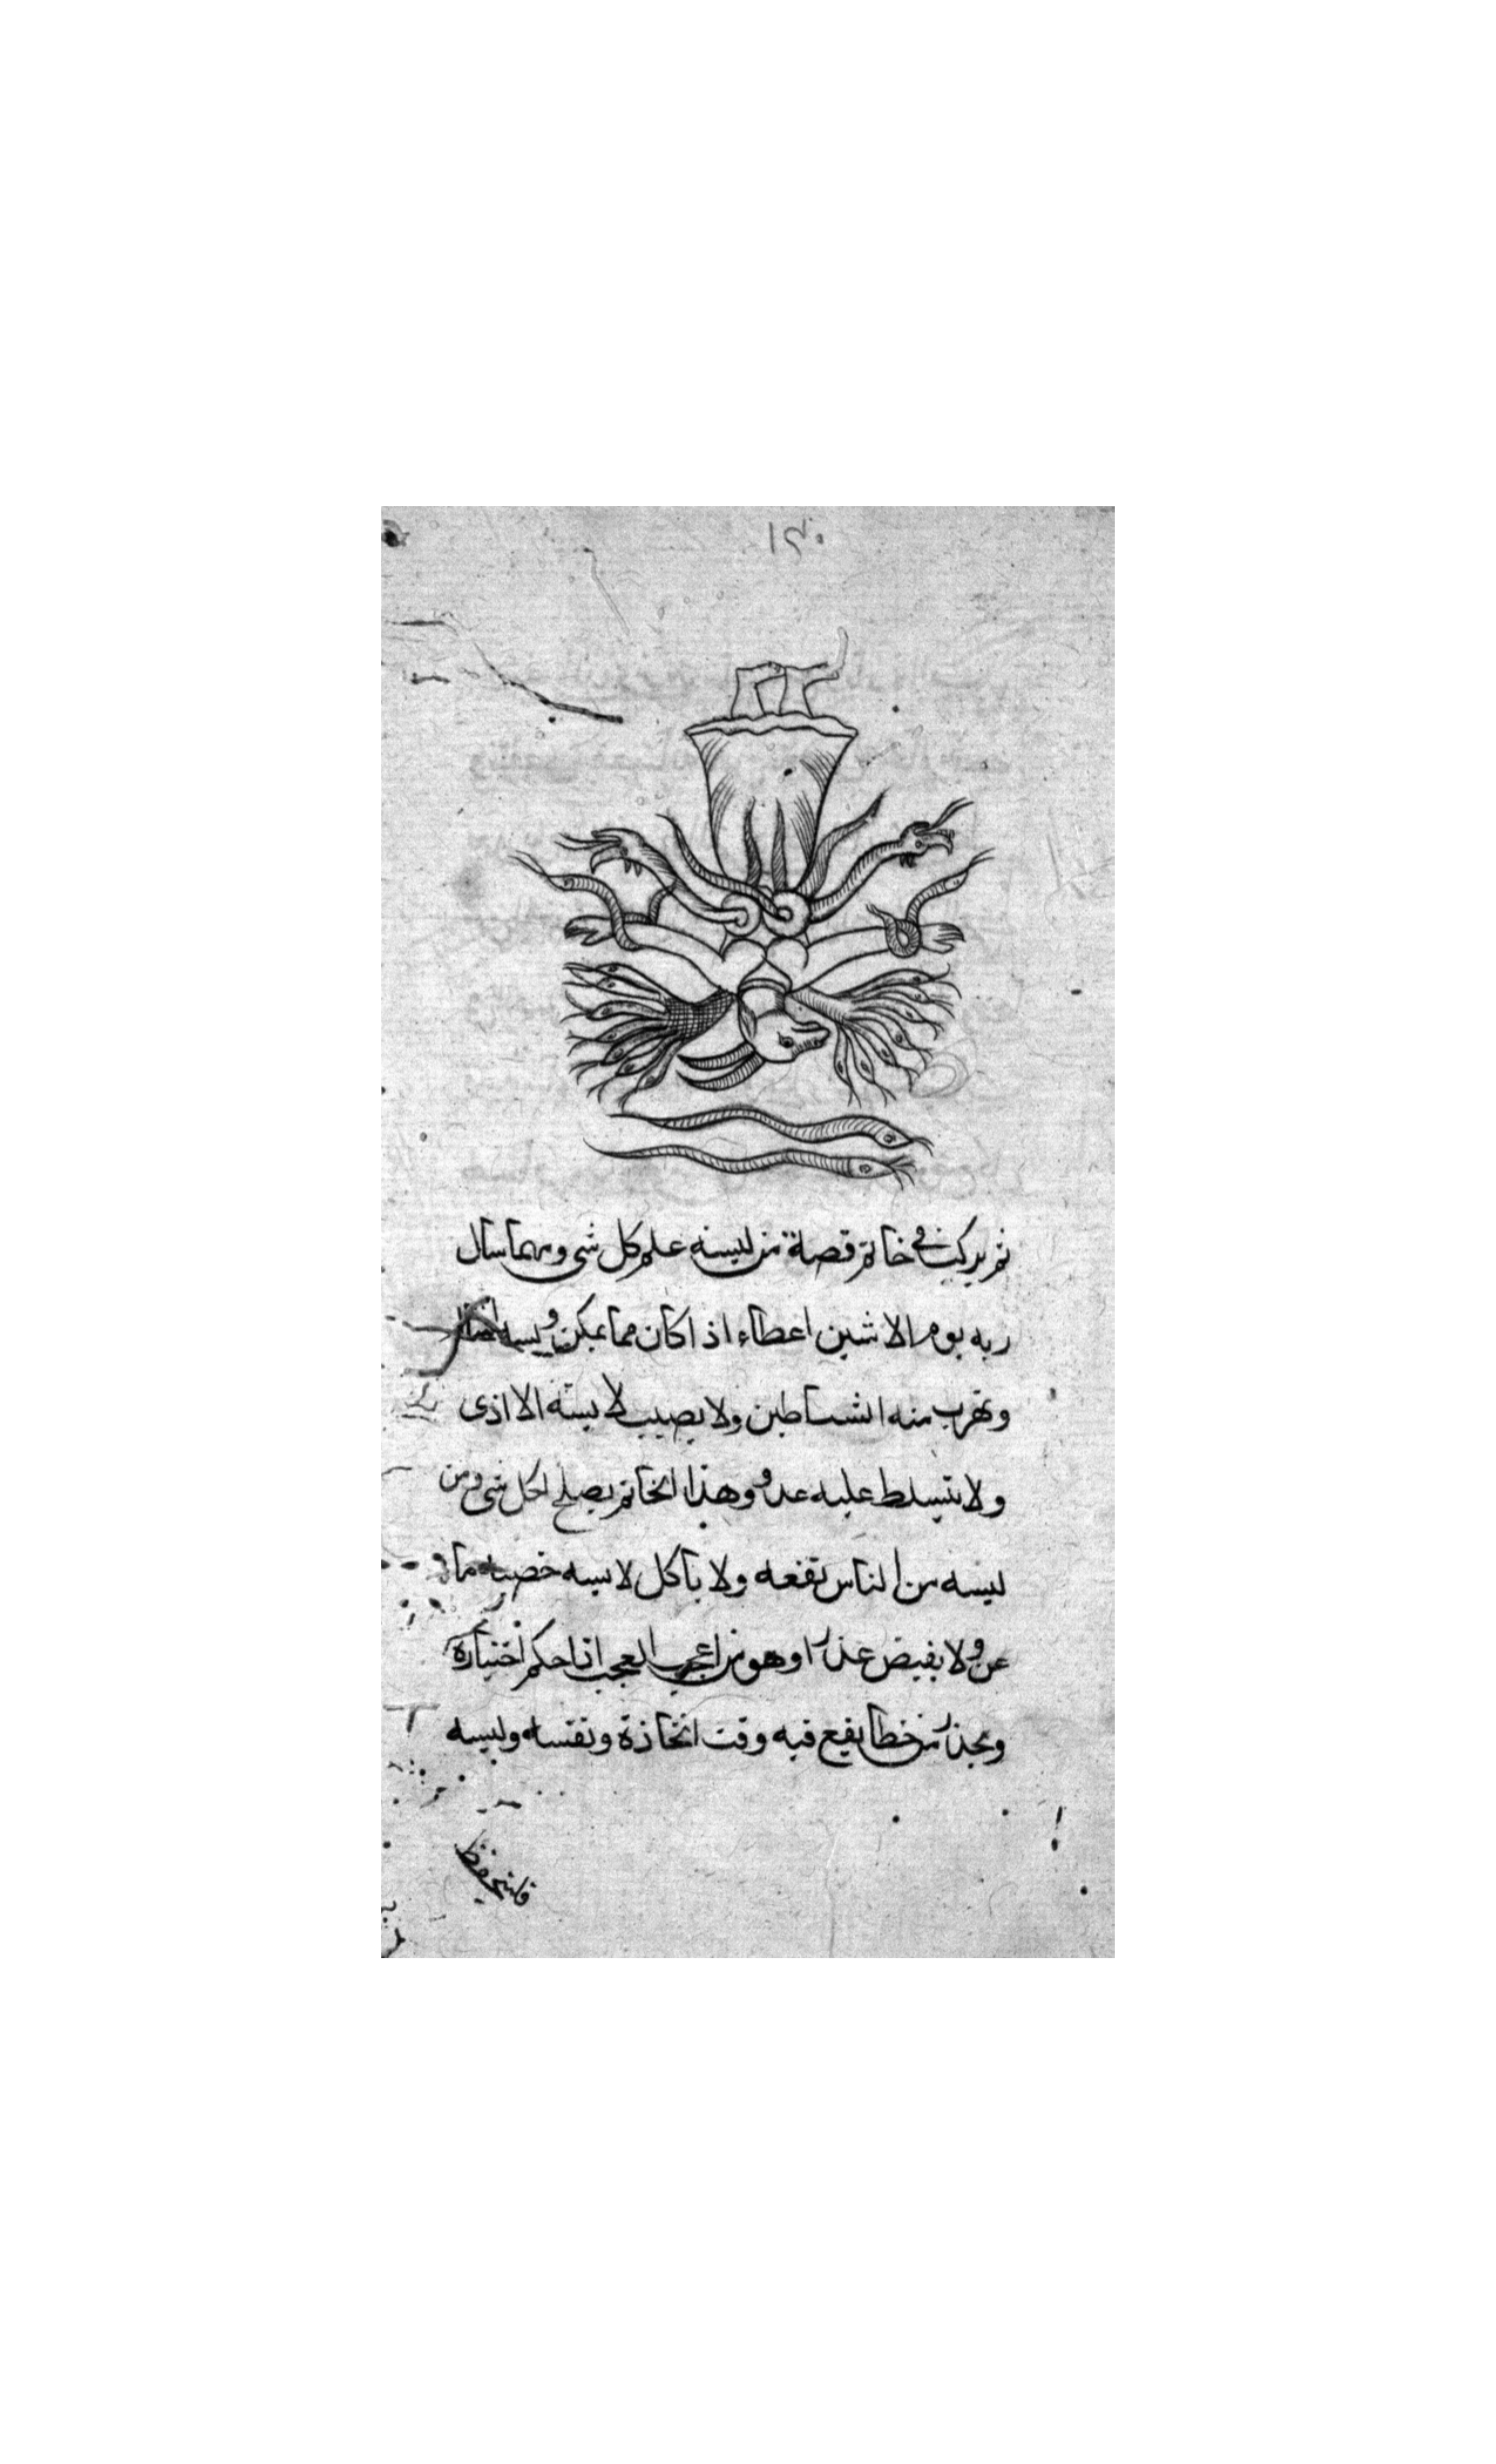 ثم يركب في خاتم فصة من لبسه علم كل شي ومهما سأل
ربه يوم الاثنين اعطاء اذا كان مما يمكن ولبسه
وتهرب منه الشياطين ولا يصيب لابسه الا اذى
ولا يتسلط عليه عدو وهذا الخاتم يصلح لكل شي ومن
لبسه من الناس نفعه ولا ياكل لابسه خصية ما
عن ولا بفيض عذرا وهو من اعجب العجب اذا احكم اختياره
ويحذر من خطا يقع فيه وقت اتخاذه ونقشه ولبسه
فليتحفظ